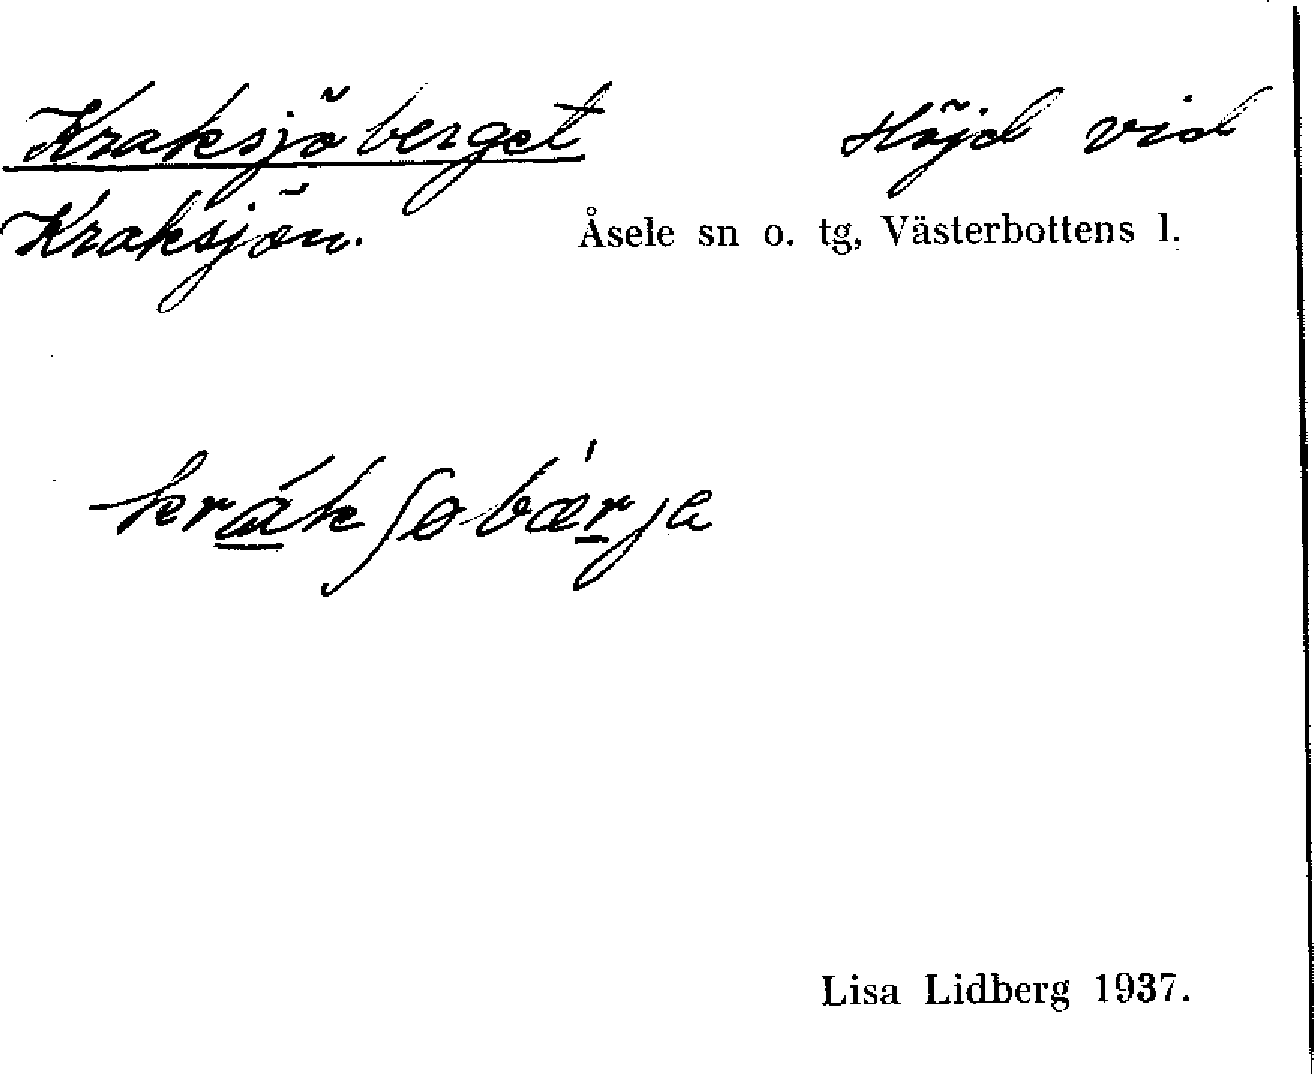 Kraksjöberget Höjd vid
Kraksjön. Åsele sn o. tg, Västerbottens l.
krákʃobær'ja
Lisa Lidberg 1937.